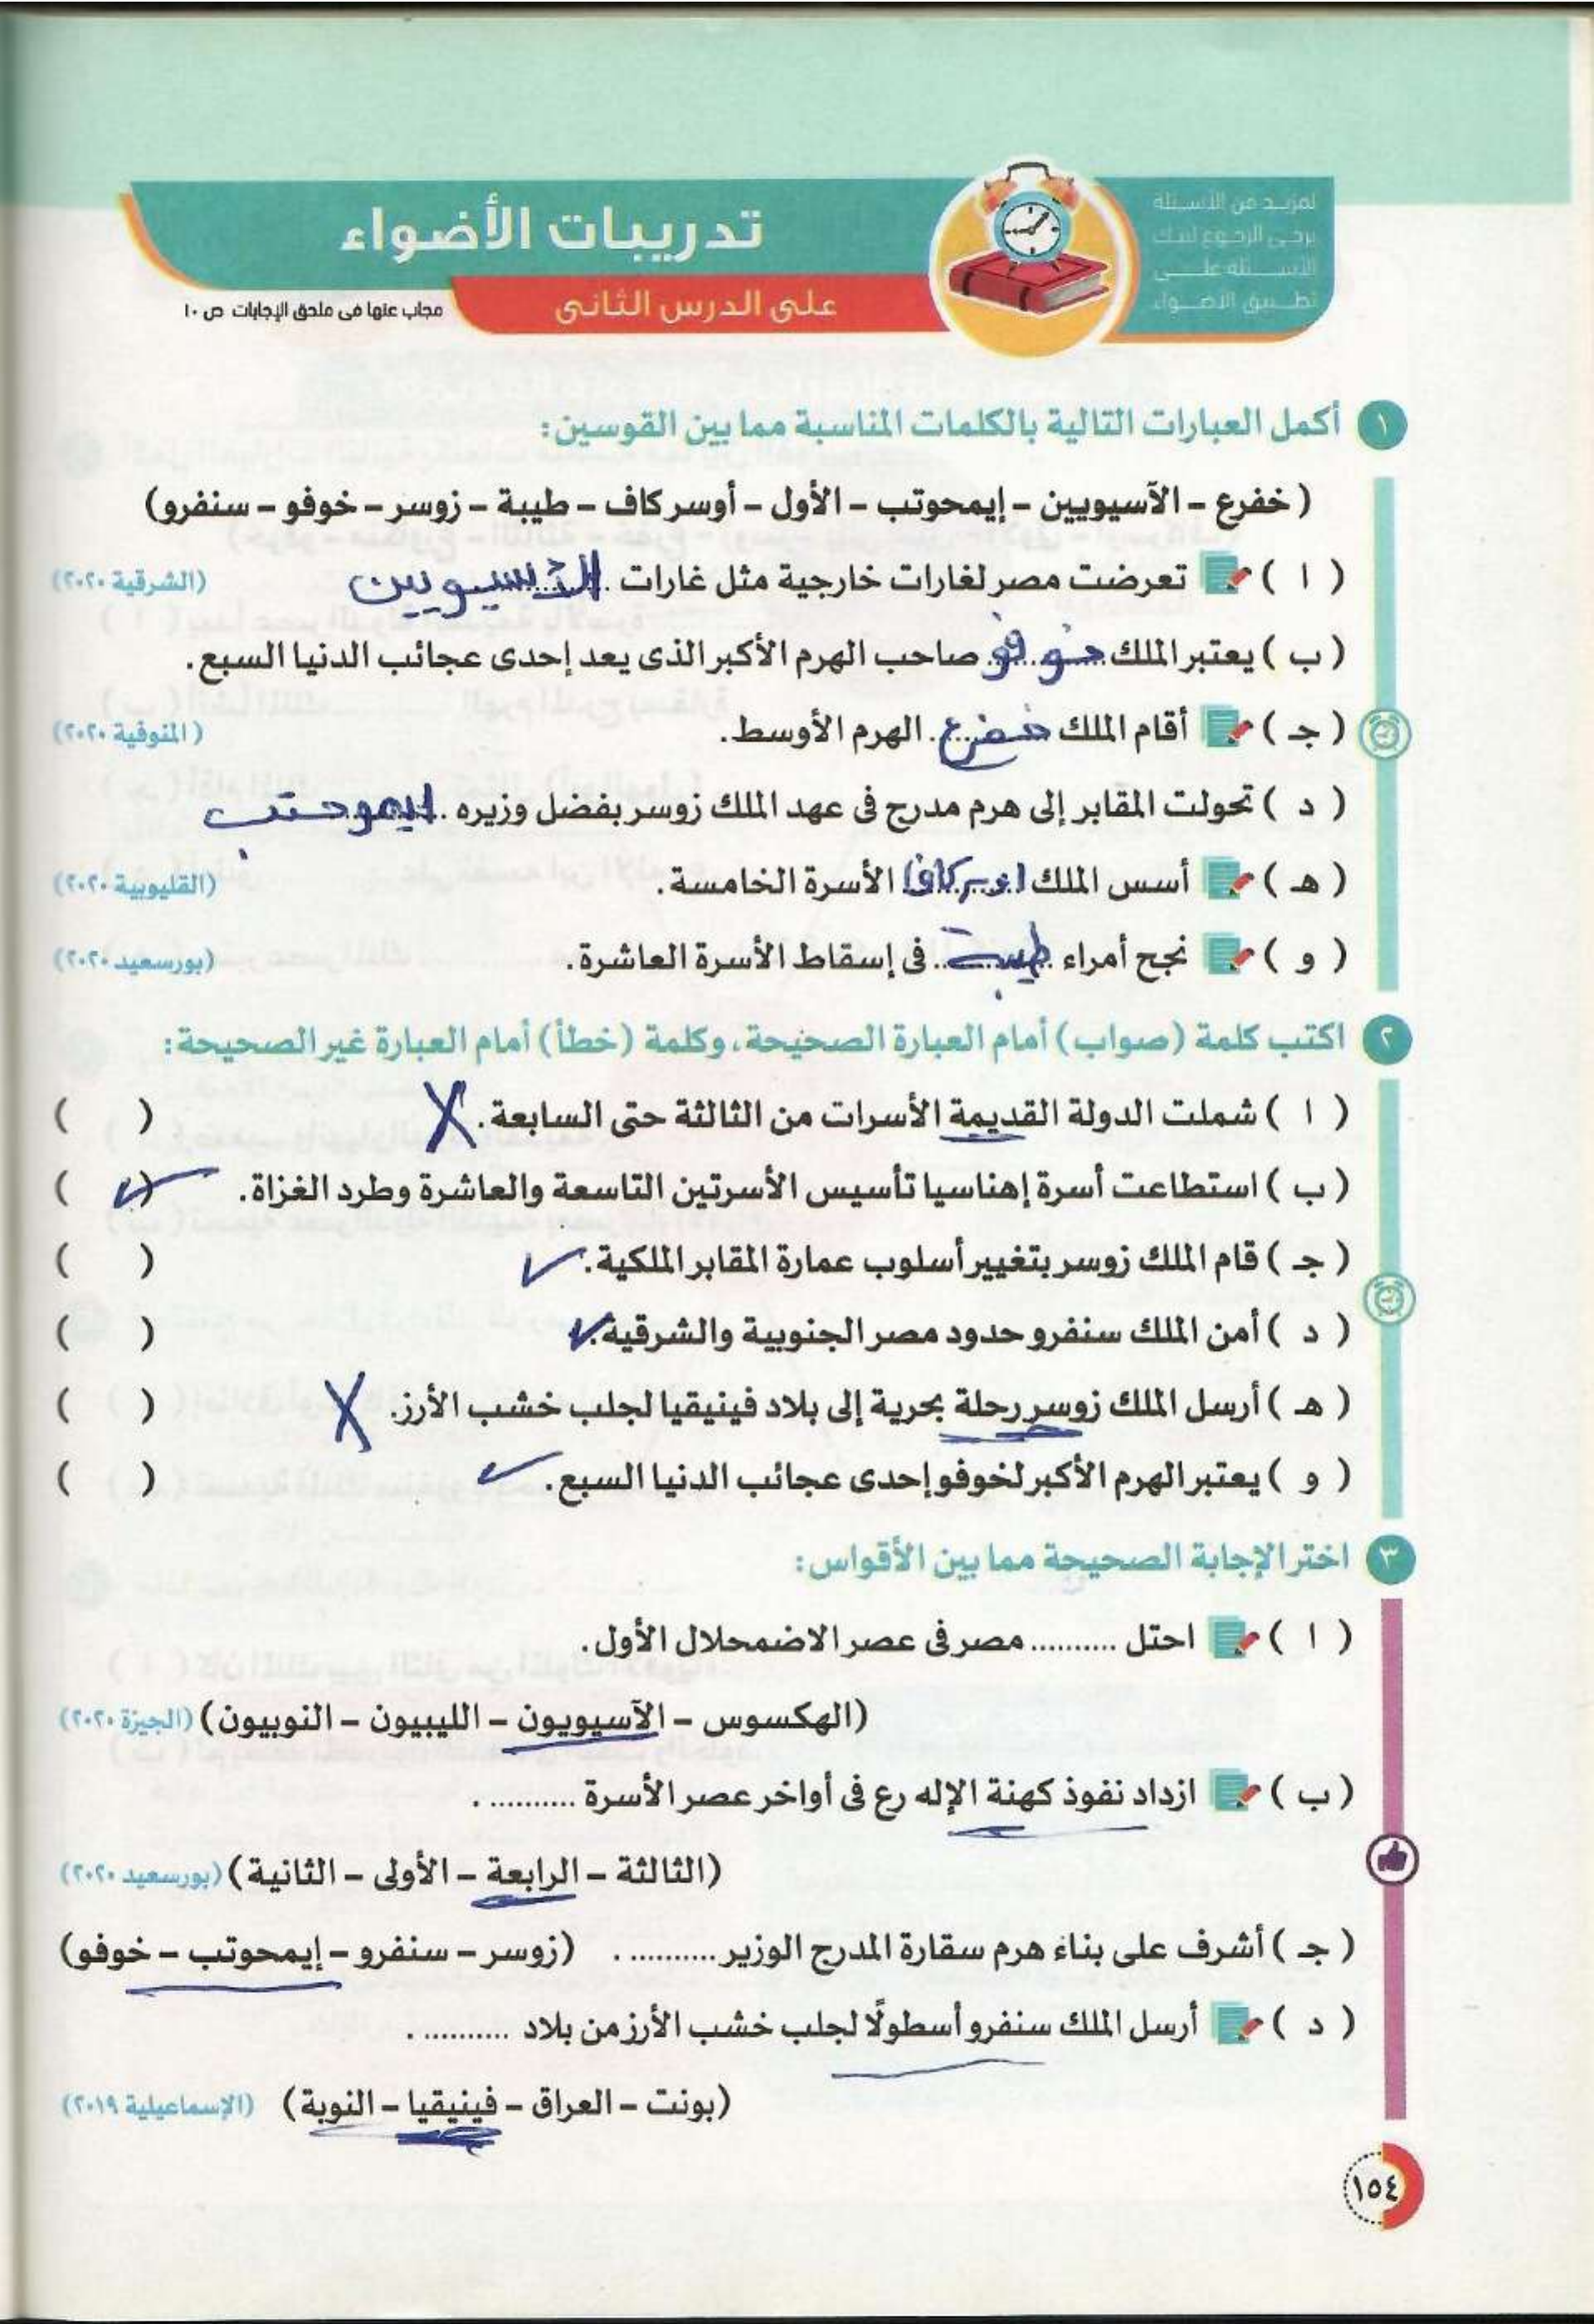 لمزيد من الأسئلة
يرجى الرجوع لبنك
الأسئلة على
تطبيق الأضواء
تدريبات الأضواء
على الدرس الثانى
مجاب عنها فى ملحق الإجابات ص ١٠
١ أكمل العبارات التالية بالكلمات المناسبة مما بين القوسين:
( خفرع - الآسيويين - إيمحوتب - الأول - أوسر كاف - طيبة - زوسر - خوفو - سنفرو)
( ا ) تعرضت مصر لغارات خارجية مثل غارات الآسيويين (الشرقية ٢٠٢٠)
( ب ) يعتبر الملك خوفو صاحب الهرم الأكبر الذى يعد إحدى عجائب الدنيا السبع.
( جـ ) أقام الملك خفرع. الهرم الأوسط. (المنوفية ٢٠٢٠)
( د ) تحولت المقابر إلى هرم مدرج فى عهد الملك زوسر بفضل وزيره ايموحتب
( هـ ) أسس الملك اوسركاف الأسرة الخامسة. (القليوبية ٢٠٢٠)
( و ) نجح أمراء طيبة فى إسقاط الأسرة العاشرة. (بورسعيد ٢٠٢٠)
٢ اكتب كلمة (صواب) أمام العبارة الصحيحة، وكلمة (خطأ) أمام العبارة غير الصحيحة:
( ا ) شملت الدولة القديمة الأسرات من الثالثة حتى السابعة. X ( )
( ب ) استطاعت أسرة إهناسيا تأسيس الأسرتين التاسعة والعاشرة وطرد الغزاة. (✓ )
( جـ ) قام الملك زوسر بتغيير أسلوب عمارة المقابر الملكية. ✓ ( )
( د ) أمن الملك سنفرو حدود مصر الجنوبية والشرقية. ✓ ( )
( هـ ) أرسل الملك زوسر رحلة بحرية إلى بلاد فينيقيا لجلب خشب الأرز. X ( )
( و ) يعتبر الهرم الأكبر لخوفو إحدى عجائب الدنيا السبع. ✓ ( )
٣ اختر الإجابة الصحيحة مما بين الأقواس:
( ا ) احتل .......... مصر فى عصر الاضمحلال الأول.
(الهكسوس - الآسيويون - الليبيون - النوبيون) (الجيزة ٢٠٢٠)
( ب ) ازداد نفوذ كهنة الإله رع فى أواخر عصر الأسرة .......... .
(الثالثة - الرابعة - الأولى - الثانية) (بورسعيد ٢٠٢٠)
( جـ ) أشرف على بناء هرم سقارة المدرج الوزير .......... . (زوسر - سنفرو - إيمحوتب - خوفو)
( د ) أرسل الملك سنفرو أسطولًا لجلب خشب الأرز من بلاد .......... .
(بونت - العراق - فينيقيا - النوبة) (الإسماعيلية ٢٠١٩)
١٥٤